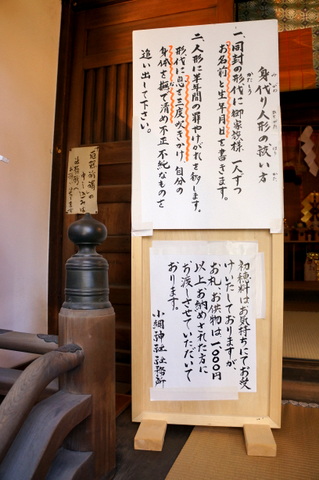 身代り人形の扱い方
一、同封の形代に御家族様一人ずつ
お名前と生年月日を書きます。
二、人形に半年間の罪やけがれを移します。
形代に息を三度吹きかけ、自分の
身体を撫で清め不正不純なものを
追い出して下さい。
初穂料はお気持ちにてお受
けいたしておりますが、
お札、お供物は一、〇〇〇円
以上お納めされた方に
お渡しさせていただいて
おります。
小網神社社務所